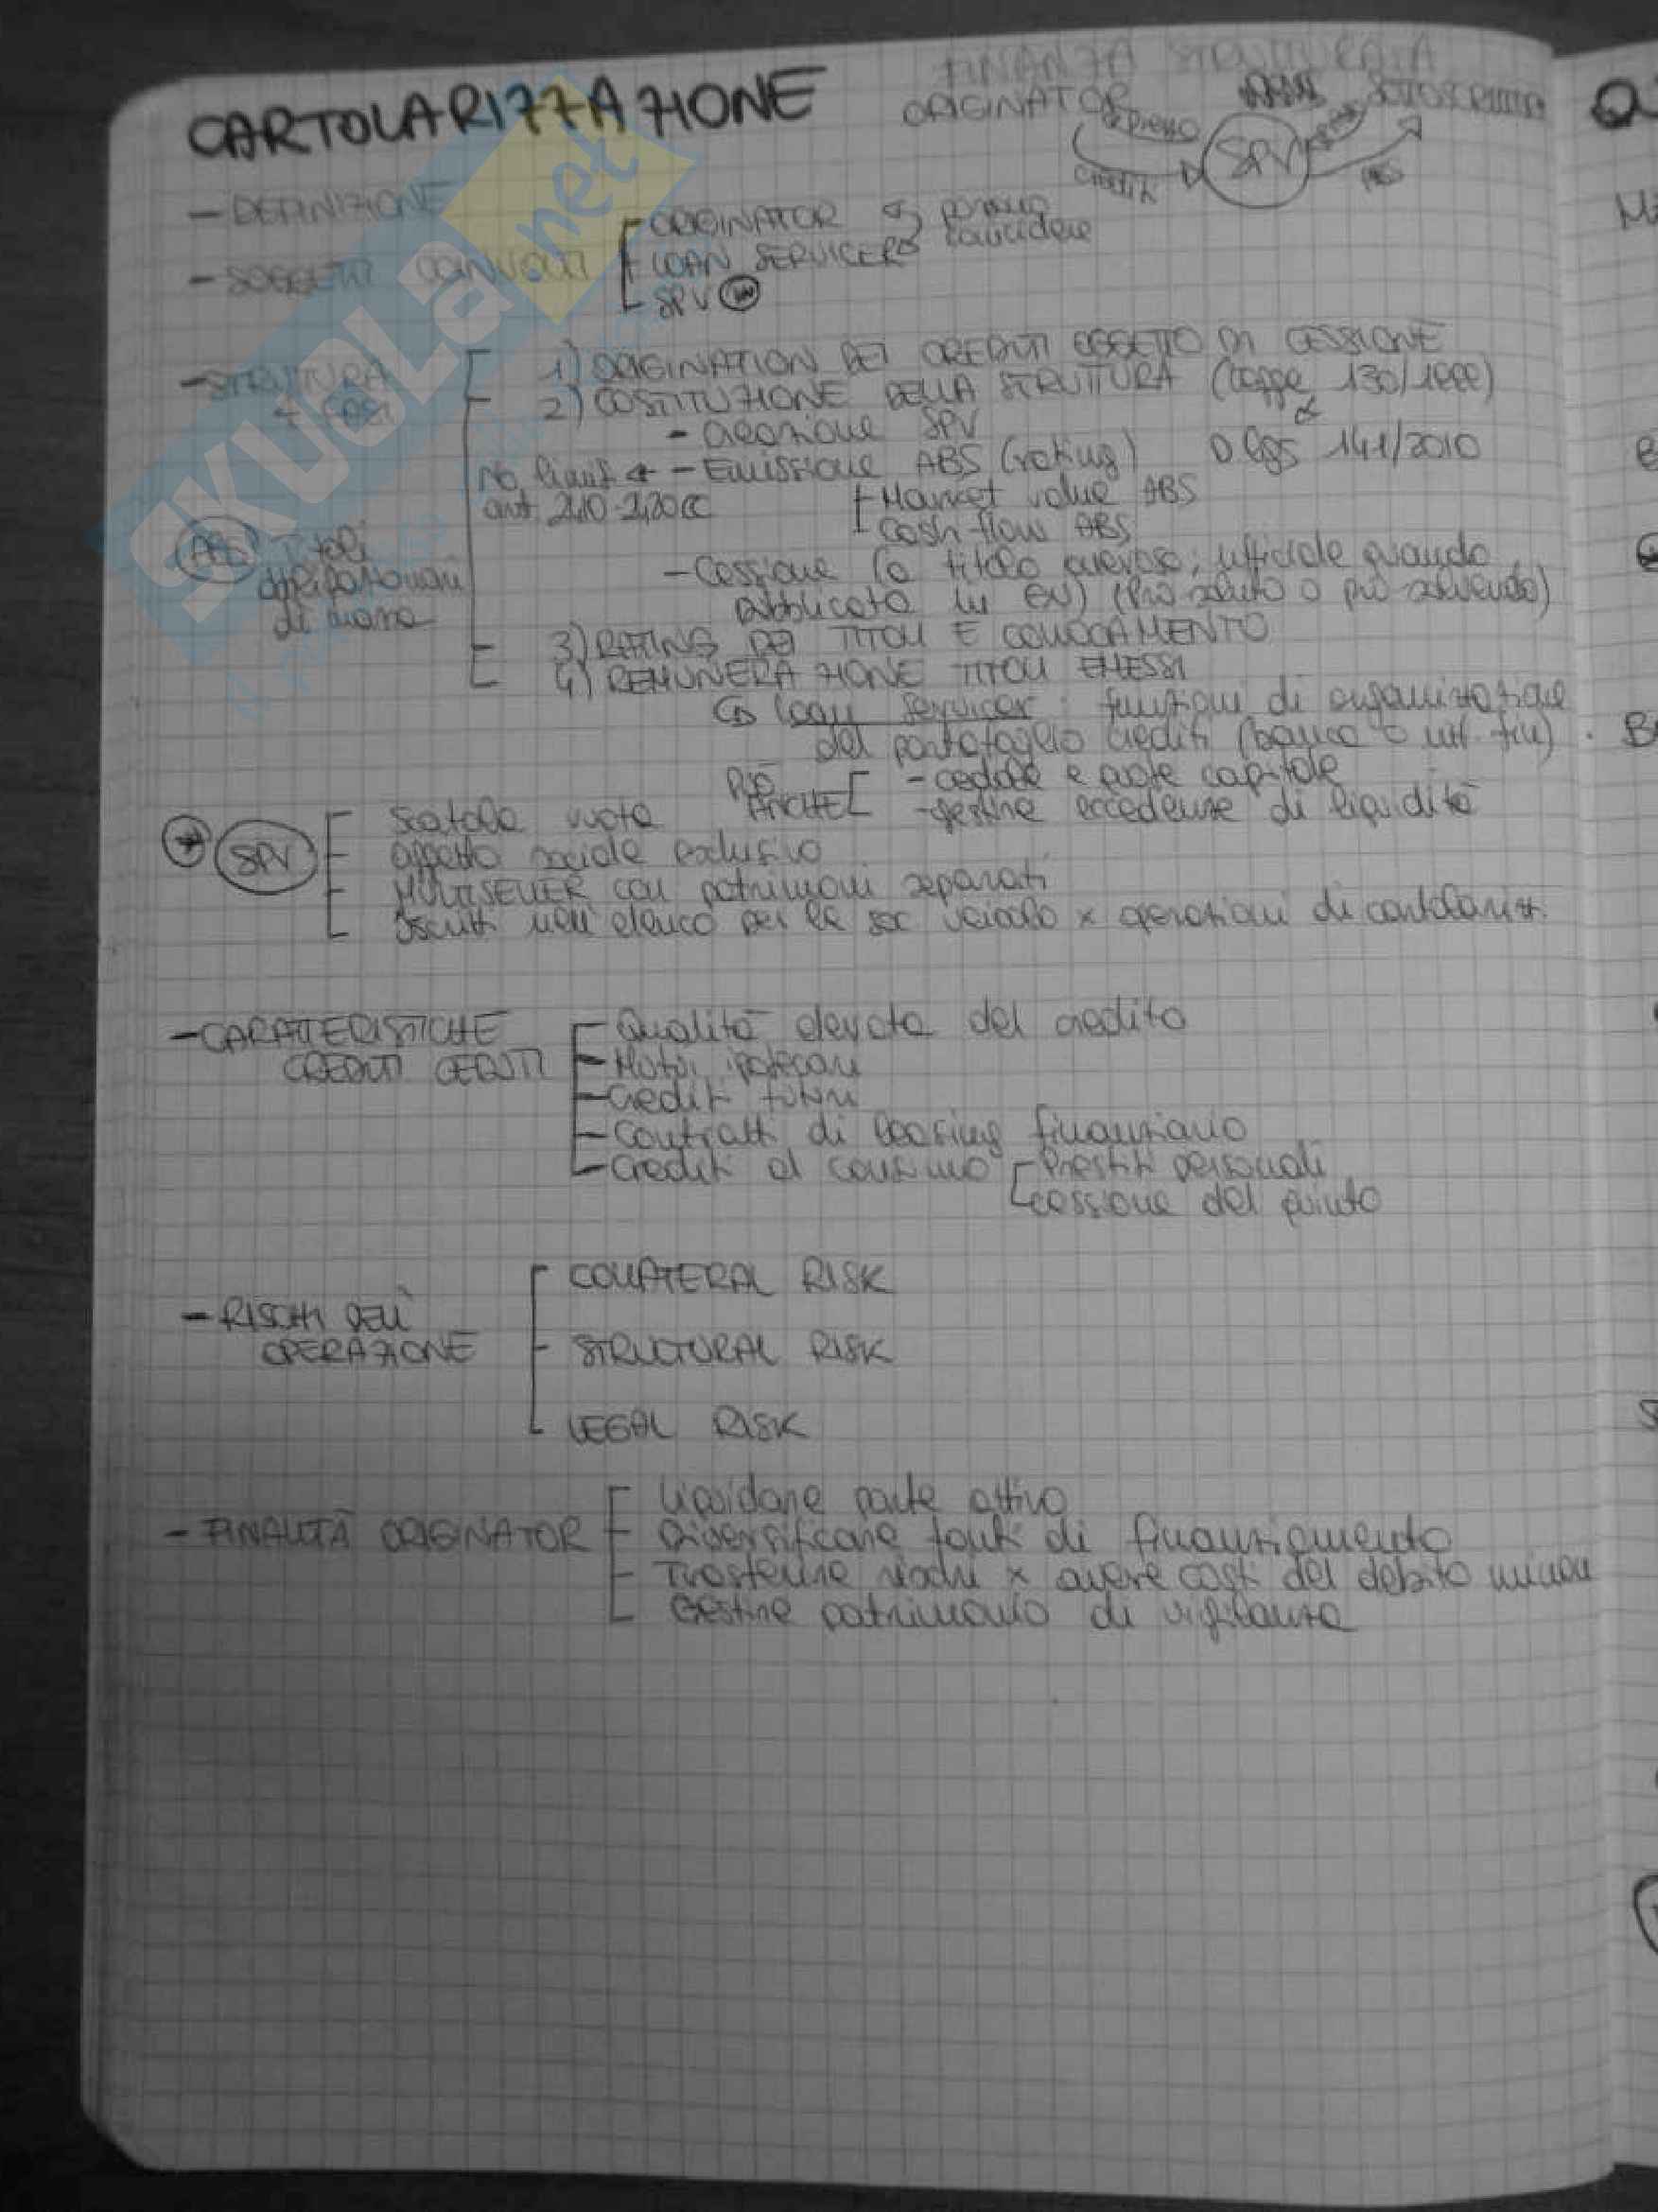 FINANZA STRUTTURATA
CARTOLARIZZAZIONE
ORIGINATOR
prezzo
SPV
crediti
ABS
- DEFINIZIONE
- SOGGETTI COINVOLTI
ORIGINATOR possono
LOAN SERVICER coincidere
SPV
- STRUTTURA
4 FASI
1) ORIGINATION DEI CREDITI OGGETTO DI CESSIONE
2) COSTITUZIONE DELLA STRUTTURA (Legge 130/1999)
&
- creazione SPV
D lgs 141/2010
No limiti ← - Emissione ABS (rating)
art. 2410-2420 cc
Market value ABS
Cash flow ABS
ABS Titoli
obbligazionari
di norma
- Cessione (a titolo oneroso; ufficiale quando
pubblicata in GU) (Pro soluto o pro solvendo)
3) RATING DEI TITOLI E COLLOCAMENTO
4) REMUNERAZIONE TITOLI EMESSI
Loan servicer: funzioni di organizzazione
del portafoglio crediti (banca o int. fin)
PUÒ
ANCHE
- cedole e quote capitale
- gestire eccedenze di liquidità
* SPV
Scatola vuota
oggetto sociale esclusivo
MULTISELLER con patrimoni separati
Iscritti nell'elenco per le soc veicolo x operazioni di cartolarizz.
- CARATTERISTICHE
CREDITI CEDUTI
Qualità elevata del credito
Mutui ipotecari
Crediti futuri
Contratti di leasing finanziario
Crediti al consumo
Prestiti personali
cessione del quinto
- RISCHI DELL'
OPERAZIONE
COLLATERAL RISK
STRUCTURAL RISK
LEGAL RISK
- FINALITÀ ORIGINATOR
Liquidare parte attivo
Diversificare fonti di finanziamento
Trasferire rischi x avere costi del debito minori
Gestire patrimonio di vigilanza
SKUOLa.net